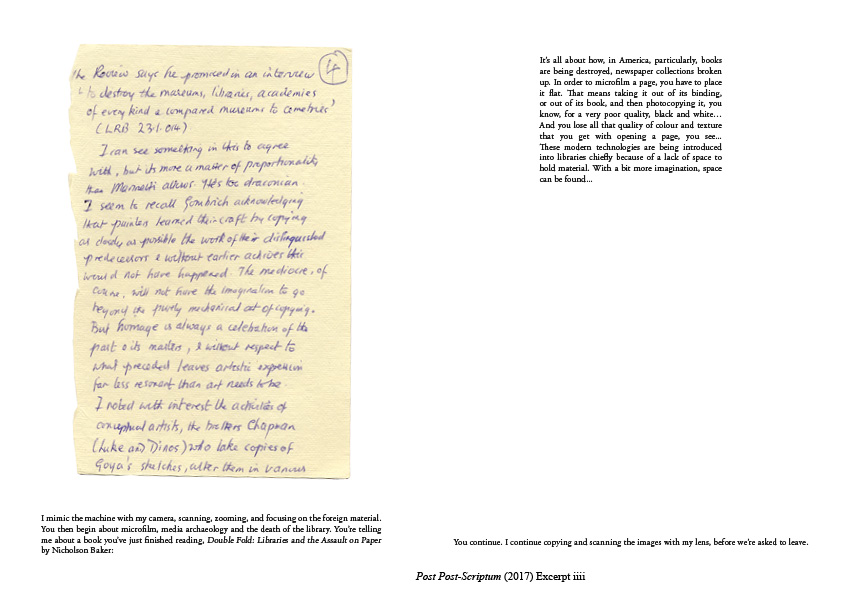 4
the Review says he promised in an interview
'to destroy the museums, libraries, academies
of every kind & compared museums to cemetries'
(LRB 23.1.014)
I can see something in this to agree
with, but its more a matter of proportionality
than Marinetti allows. He's too draconian.
I seem to recall Gombrich acknowledging
that painters learned their craft by copying
as closely as possible the work of their distinguished
predecessors & without earlier achives this
would not have happened. The mediocre, of
course, will not have the imagination to go
beyond the purely mechanical act of copying.
But homage is always a celebration of the
past & its masters, & without respect to
what preceded leaves artistic expression
far less resonant than art needs to be
I noted with interest the activities of
conceptual artists, the brothers Chapman
(Luke and Dinos) who take copies of
Goya's sketches, alter them in various
I mimic the machine with my camera, scanning, zooming, and focusing on the foreign material.
You then begin about microfilm, media archaeology and the death of the library. You're telling
me about a book you've just finished reading, Double Fold: Libraries and the Assault on Paper
by Nicholson Baker:
It's all about how, in America, particularly, books
are being destroyed, newspaper collections broken
up. In order to microfilm a page, you have to place
it flat. That means taking it out of its binding,
or out of its book, and then photocopying it, you
know, for a very poor quality, black and white…
And you lose all that quality of colour and texture
that you get with opening a page, you see...
These modern technologies are being introduced
into libraries chiefly because of a lack of space to
hold material. With a bit more imagination, space
can be found...
You continue. I continue copying and scanning the images with my lens, before we're asked to leave.
Post Post-Scriptum (2017) Excerpt iiii